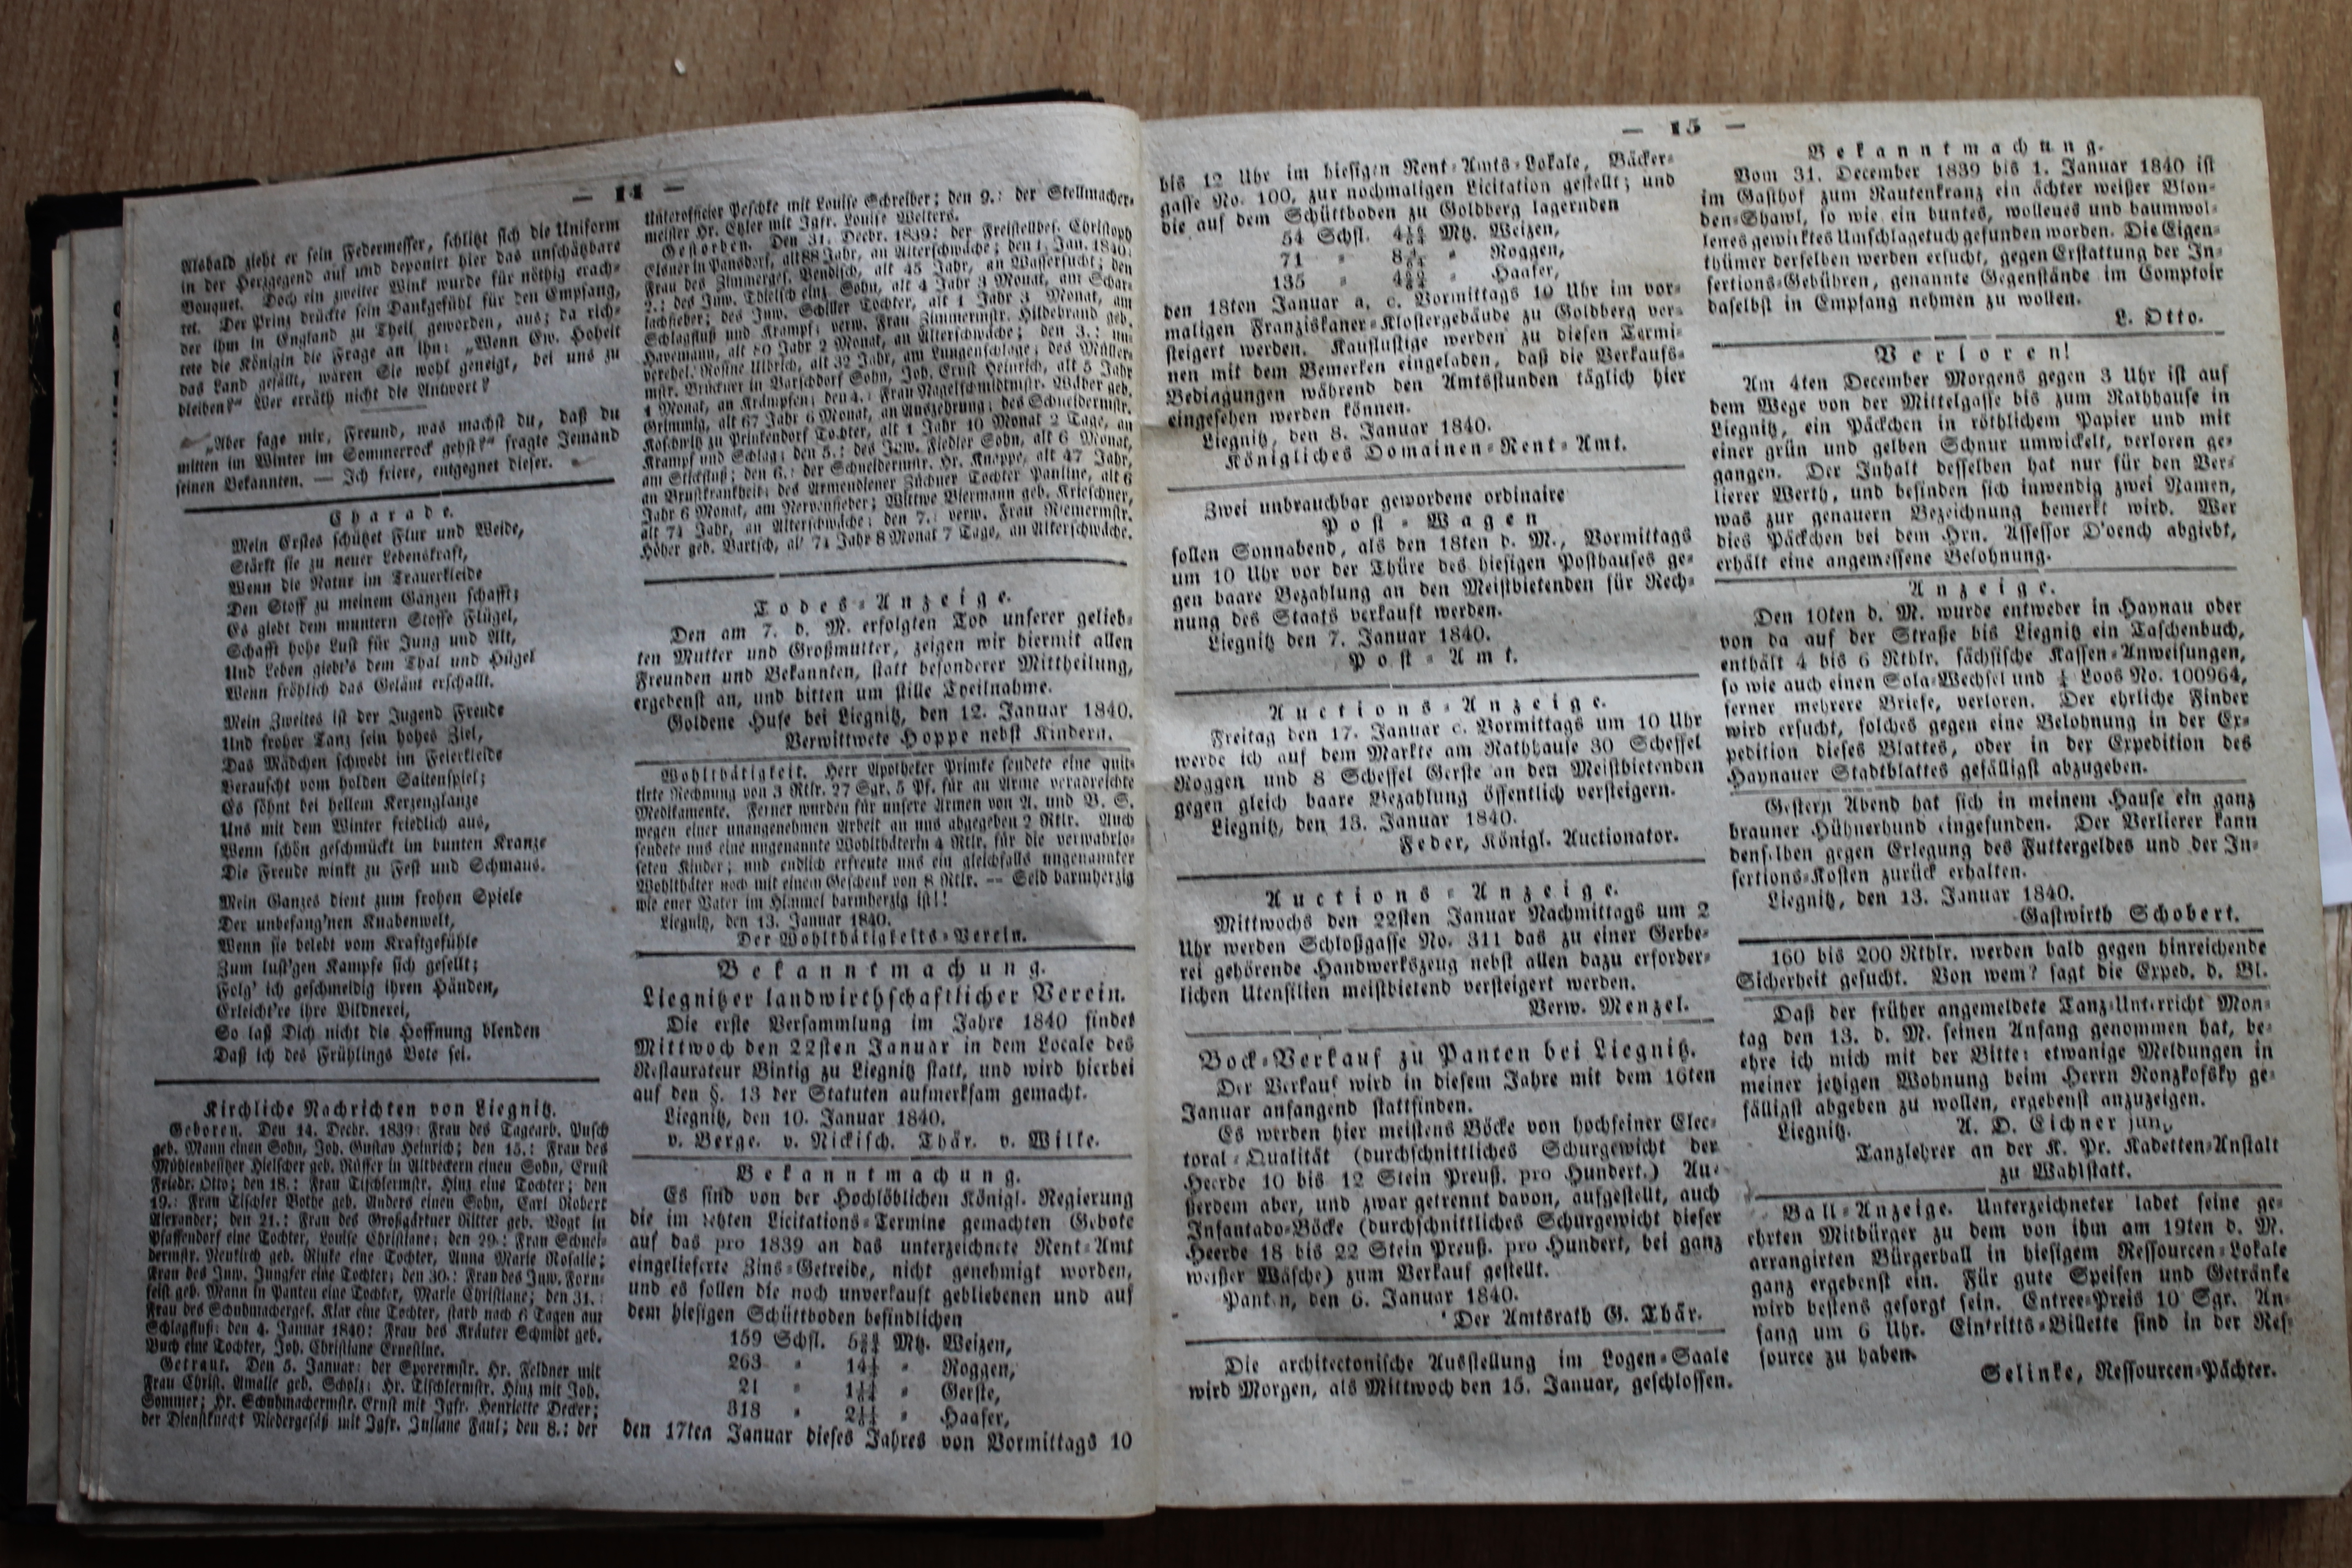 — 14 —
Alsbald zieht er sein Federmesser, schlitzt sich die Uniform
in der Herzgegend auf und deponirt hier das unschätzbare
Bouquet. Doch ein zweiter Wink wurde für nöthig erach-
tet. Der Prinz drückte sein Dankgefühl für den Empfang,
der ihm in England zu Theil geworden, aus; da rich-
tete die Königin die Frage an ihn: „Wenn Ew. Hoheit
das Land gefällt, wären Sie wohl geneigt, bei uns zu
bleiben?“ Wer erräth nicht die Antwort?
„Aber sage mir, Freund, was machst du, daß du
mitten im Winter im Sommerrock gehst?“ fragte Jemand
seinen Bekannten. — Ich friere, entgegnet dieser.
Charade.
Mein Erstes schützet Flur und Weide,
Stärkt sie zu neuer Lebenskraft,
Wenn die Natur im Trauerkleide
Den Stoff zu meinem Ganzen schafft;
Es giebt dem muntern Stoffe Flügel,
Schafft hohe Lust für Jung und Alt,
Und Leben giebt's dem Thal und Hügel
Wenn fröhlich das Geläut erschallt.
Mein Zweites ist der Jugend Freude
Und froher Tanz sein hohes Ziel,
Das Mädchen schwebt im Feierkleide
Berauscht vom holden Saitenspiel;
Es söhnt bei hellem Kerzenglanze
Uns mit dem Winter friedlich aus,
Wenn schön geschmückt im bunten Kranze
Die Freude winkt zu Fest und Schmaus.
Mein Ganzes dient zum frohen Spiele
Der unbefang'nen Knabenwelt,
Wenn sie belebt vom Kraftgefühle
Zum lust'gen Kampfe sich gesellt;
Folg' ich geschmeidig ihren Händen,
Erleicht're ihre Bildnerei,
So laß Dich nicht die Hoffnung blenden
Daß ich des Frühlings Bote sei.
Kirchliche Nachrichten von Liegnitz.
Geboren. Den 14. Decbr. 1839: Frau des Tagearb. Pusch
geb. Mann einen Sohn, Joh. Gustav Heinrich; den 15.: Frau des
Mühlenbesitzer Hielscher geb. Rüffer in Altbeckern einen Sohn, Ernst
Friedr. Otto; den 18.: Frau Tischlermstr. Hinz eine Tochter; den
19.: Frau Tischler Bothe geb. Anders einen Sohn, Carl Robert
Alexander; den 21.: Frau des Großgärtner Ritter geb. Vogt in
Pfaffendorf eine Tochter, Louise Christiane; den 29.: Frau Schnei-
dermstr. Neukirch geb. Rinke eine Tochter, Anna Marie Rosalie;
Frau des Inw. Jungfer eine Tochter; den 30.: Frau des Inw. Forn-
feist geb. Mann in Panten eine Tochter, Marie Christiane; den 31.:
Frau des Schuhmacherges. Klar eine Tochter, starb nach 6 Tagen am
Schlagfluß; den 4. Januar 1840: Frau des Kräuter Schmidt geb.
Buch eine Tochter, Joh. Christiane Ernestine.
Getraut. Den 5. Januar: der Sporermstr. Hr. Feldner mit
Frau Christ. Amalie geb. Scholz; Hr. Tischlermstr. Hinz mit Joh.
Sommer; Hr. Schuhmachermstr. Ernst mit Jgfr. Henriette Decker;
der Dienstknecht Niedergesäß mit Jgfr. Juliane Faul; den 8.: der
Unterofficier Peschke mit Louise Schreiber; den 9.: der Stellmacher-
meister Hr. Exler mit Jgfr. Louise Welters.
Gestorben. Den 31. Decbr. 1839: der Freistellbes. Christoph
Elsner in Pansdorf, alt 88 Jahr, an Alterschwäche; den 1. Jan. 1840:
Frau des Zimmerges. Bendisch, alt 45 Jahr, an Wassersucht; den
2.: des Inw. Thielsch einz. Sohn, alt 4 Jahr 3 Monat, am Schar-
lachfieber; des Inw. Schiller Tochter, alt 1 Jahr 3 Monat, am
Schlagfluß und Krampf; verw. Frau Zimmermstr. Hildebrand geb.
Havemann, alt 80 Jahr 2 Monat, an Alterschwäche; den 3.: un-
verehel. Rosine Ulbrich, alt 32 Jahr, am Lungenschlage; des Müller-
mstr. Brückner in Barschdorf Sohn, Joh. Ernst Heinrich, alt 5 Jahr
1 Monat, an Krämpfen; den 4.: Frau Nagelschmidtmstr. Wilder geb.
Grimmig, alt 67 Jahr 6 Monat, an Auszehrung; des Schneidermstr.
Koschwitz zu Prinkendorf Tochter, alt 1 Jahr 10 Monat 2 Tage, an
Krampf und Schlag; den 5.: des Inw. Fiedler Sohn, alt 6 Monat,
am Stickfluß; den 6.: der Schneidermstr. Hr. Knoppe, alt 47 Jahr,
an Brustkrankheit; des Armendiener Züchner Tochter Pauline, alt 6
Jahr 6 Monat, am Nervenfieber; Wittwe Biermann geb. Krieschner,
alt 74 Jahr, an Alterschwäche; den 7.: verw. Frau Riemermstr.
Höher geb. Bartsch, alt 74 Jahr 8 Monat 7 Tage, an Alterschwäche.
Todes-Anzeige.
Den am 7. d. M. erfolgten Tod unserer gelieb-
ten Mutter und Großmutter, zeigen wir hiermit allen
Freunden und Bekannten, statt besonderer Mittheilung,
ergebenst an, und bitten um stille Theilnahme.
Goldene Hufe bei Liegnitz, den 12. Januar 1840.
Verwittwete Hoppe nebst Kindern.
Wohlthätigkeit. Herr Apotheker Primke sendete eine quit-
tirte Rechnung von 3 Rtlr. 27 Sgr. 5 Pf. für an Arme verabreichte
Medikamente. Ferner wurden für unsere Armen von A. und B. S.
wegen einer unangenehmen Arbeit an uns abgegeben 2 Rtlr. Auch
sendete uns eine ungenannte Wohlthäterin 4 Rtlr. für die verwahrlo-
seten Kinder; und endlich erfreute uns ein gleichfalls ungenannter
Wohlthäter noch mit einem Geschenk von 8 Rtlr. — Seid barmherzig
wie euer Vater im Himmel barmherzig ist!!
Liegnitz, den 13. Januar 1840.
Der Wohlthätigkeits-Verein.
Bekanntmachung.
Liegnitzer landwirthschaftlicher Verein.
Die erste Versammlung im Jahre 1840 findet
Mittwoch den 22sten Januar in dem Locale des
Restaurateur Bintig zu Liegnitz statt, und wird hierbei
auf den §. 13 der Statuten aufmerksam gemacht.
Liegnitz, den 10. Januar 1840.
v. Berge. v. Nickisch. Thär. v. Wille.
Bekanntmachung.
Es sind von der Hochlöblichen Königl. Regierung
die im letzten Licitations-Termine gemachten Gebote
auf das pro 1839 an das unterzeichnete Rent-Amt
eingelieferte Zins-Getreide, nicht genehmigt worden,
und es sollen die noch unverkauft gebliebenen und auf
dem hiesigen Schüttboden befindlichen
159 Schfl. Mtz. Weizen,
263 „ „ Roggen,
21 „ „ Gerste,
318 „ „ Haafer,
den 17ten Januar dieses Jahres von Vormittags 10
— 15 —
bis 12 Uhr im hiesigen Rent-Amts-Lokale, Bäcker-
gasse No. 100, zur nochmaligen Licitation gestellt; und
die auf dem Schüttboden zu Goldberg lagernden
54 Schfl. Mtz. Weizen,
71 „ „ Roggen,
135 „ „ Haafer,
den 18ten Januar a. c. Vormittags 10 Uhr im vor-
maligen Franziskaner-Klostergebäude zu Goldberg ver-
steigert werden. Kauflustige werden zu diesen Termi-
nen mit dem Bemerken eingeladen, daß die Verkaufs-
Bedingungen während den Amtsstunden täglich hier
eingesehen werden können.
Liegnitz, den 8. Januar 1840.
Königliches Domainen-Rent-Amt.
Zwei unbrauchbar gewordene ordinaire
Post-Wagen
sollen Sonnabend, als den 18ten d. M., Vormittags
um 10 Uhr vor der Thüre des hiesigen Posthauses ge-
gen baare Bezahlung an den Meistbietenden für Rech-
nung des Staats verkauft werden.
Liegnitz den 7. Januar 1840.
Post-Amt.
Auctions-Anzeige.
Freitag den 17. Januar c. Vormittags um 10 Uhr
werde ich auf dem Markte am Rathhause 30 Scheffel
Roggen und 8 Scheffel Gerste an den Meistbietenden
gegen gleich baare Bezahlung öffentlich versteigern.
Liegnitz, den 13. Januar 1840.
Feder, Königl. Auctionator.
Auctions-Anzeige.
Mittwochs den 22sten Januar Nachmittags um 2
Uhr werden Schloßgasse No. 311 das zu einer Gerbe-
rei gehörende Handwerkszeug nebst allen dazu erforder-
lichen Utensilien meistbietend versteigert werden.
Verw. Menzel.
Bock-Verkauf zu Panten bei Liegnitz.
Der Verkauf wird in diesem Jahre mit dem 16ten
Januar anfangend stattfinden.
Es werden hier meistens Böcke von hochfeiner Elec-
toral-Qualität (durchschnittliches Schurgewicht der
Heerde 10 bis 12 Stein Preuß. pro Hundert.) Au-
ßerdem aber, und zwar getrennt davon, aufgestellt, auch
Infantado-Böcke (durchschnittliches Schurgewicht dieser
Heerde 18 bis 22 Stein Preuß. pro Hundert, bei ganz
weißer Wäsche) zum Verkauf gestellt.
Panten, den 6. Januar 1840.
Der Amtsrath G. Thär.
Die architectonische Ausstellung im Logen-Saale
wird Morgen, als Mittwoch den 15. Januar, geschlossen.
Bekanntmachung.
Vom 31. December 1839 bis 1. Januar 1840 ist
im Gasthof zum Rautenkranz ein ächter weißer Blon-
den-Shawl, so wie ein buntes, wollenes und baumwol-
lenes gewirktes Umschlagetuch gefunden worden. Die Eigen-
thümer derselben werden ersucht, gegen Erstattung der In-
sertions-Gebühren, genannte Gegenstände im Comptoir
daselbst in Empfang nehmen zu wollen.
L. Otto.
Verloren!
Am 4ten December Morgens gegen 3 Uhr ist auf
dem Wege von der Mittelgasse bis zum Rathhause in
Liegnitz, ein Päckchen in röthlichem Papier und mit
einer grün und gelben Schnur umwickelt, verloren ge-
gangen. Der Inhalt desselben hat nur für den Ver-
lierer Werth, und befinden sich inwendig zwei Namen,
was zur genauern Bezeichnung bemerkt wird. Wer
dies Päckchen bei dem Hrn. Assessor D'oench abgiebt,
erhält eine angemessene Belohnung.
Anzeige.
Den 10ten d. M. wurde entweder in Haynau oder
von da auf der Straße bis Liegnitz ein Taschenbuch,
enthält 4 bis 6 Rthlr. sächsische Kassen-Anweisungen,
so wie auch einen Sola-Wechsel und ¼ Loos No. 100964,
ferner mehrere Briefe, verloren. Der ehrliche Finder
wird ersucht, solches gegen eine Belohnung in der Ex-
pedition dieses Blattes, oder in der Expedition des
Haynauer Stadtblattes gefälligst abzugeben.
Gestern Abend hat sich in meinem Hause ein ganz
brauner Hühnerhund eingefunden. Der Verlierer kann
denselben gegen Erlegung des Futtergeldes und der In-
sertions-Kosten zurück erhalten.
Liegnitz, den 13. Januar 1840.
Gastwirth Schobert.
160 bis 200 Rthlr. werden bald gegen hinreichende
Sicherheit gesucht. Von wem? sagt die Exped. d. Bl.
Daß der früher angemeldete Tanz-Unterricht Mon-
tag den 13. d. M. seinen Anfang genommen hat, be-
ehre ich mich mit der Bitte: etwanige Meldungen in
meiner jetzigen Wohnung beim Herrn Ronzkofsky ge-
fälligst abgeben zu wollen, ergebenst anzuzeigen.
Liegnitz. A. D. Eichner jun.,
Tanzlehrer an der K. Pr. Kadetten-Anstalt
zu Wahlstatt.
Ball-Anzeige. Unterzeichneter ladet seine ge-
ehrten Mitbürger zu dem von ihm am 19ten d. M.
arrangirten Bürgerball in hiesigem Ressourcen-Lokale
ganz ergebenst ein. Für gute Speisen und Getränke
wird bestens gesorgt sein. Entree-Preis 10 Sgr. An-
fang um 6 Uhr. Eintritts-Billette sind in der Res-
source zu haben.
Selinke, Ressourcen-Pächter.